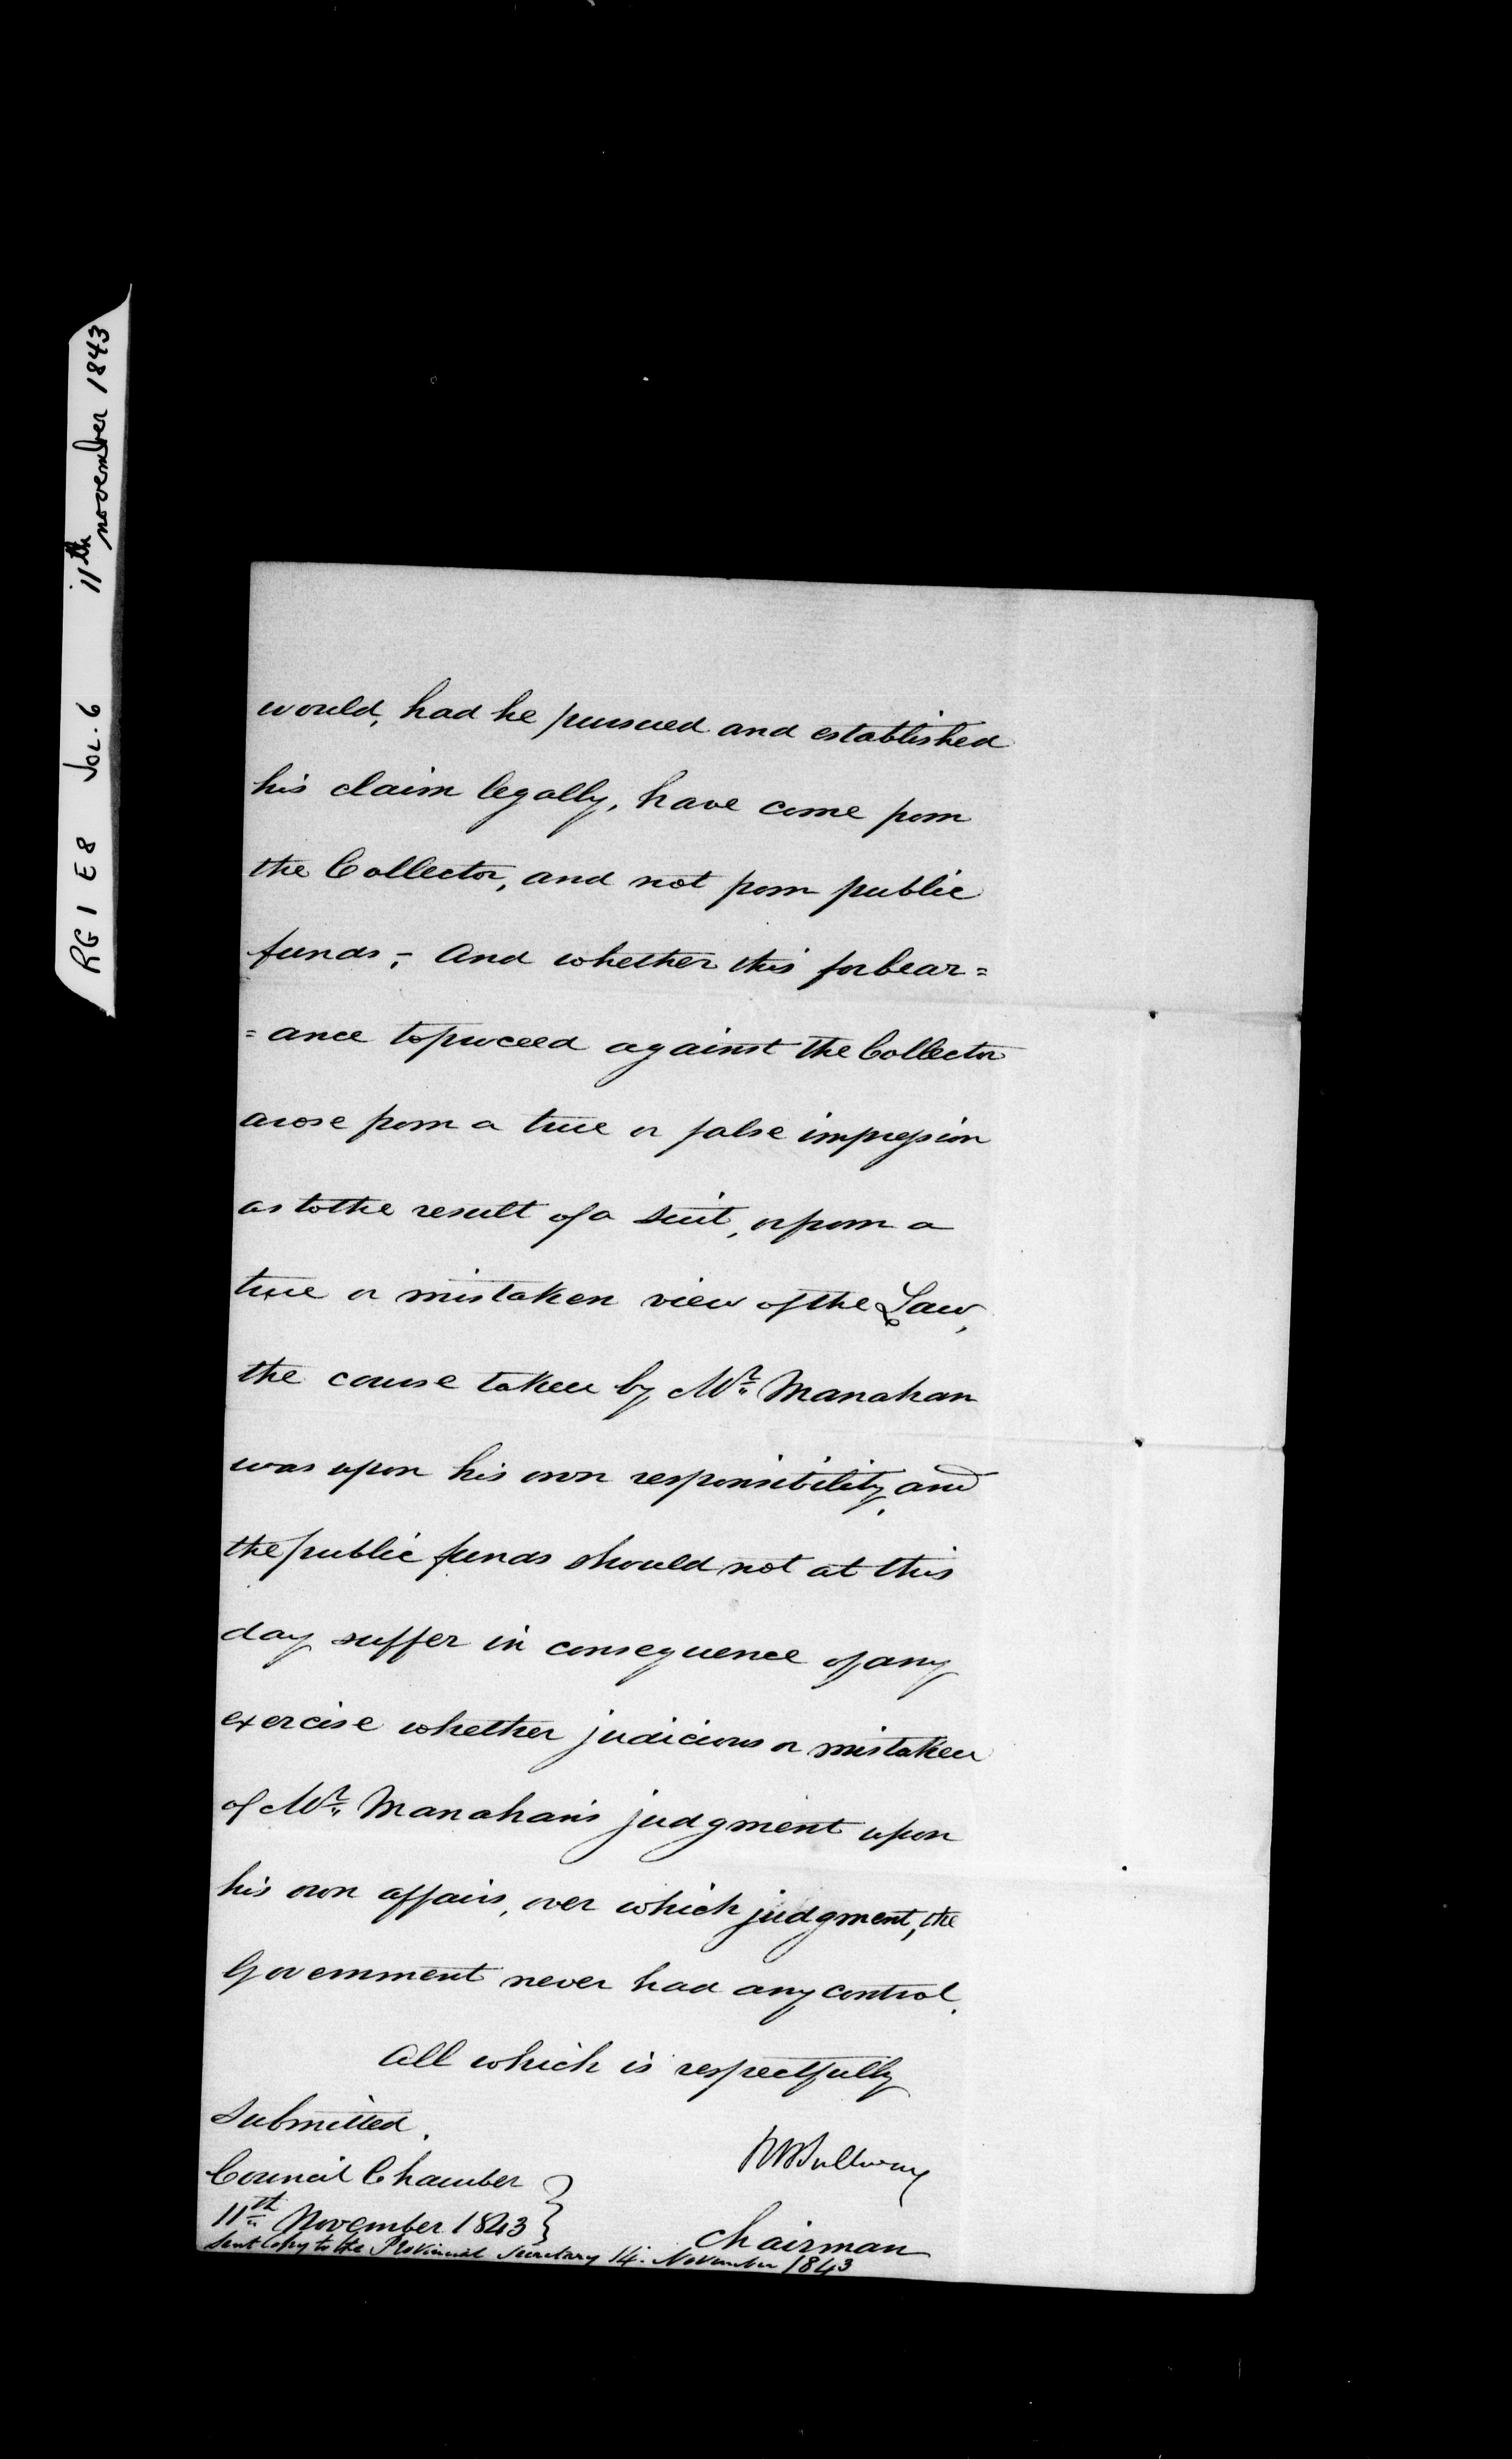 RG 1 E8 Vol. 6 11th november 1843
would, had he pursued and established
his claim legally, have come from
the Collector, and not from public
funds; - And whether this forbear=
=ance to proceed against the Collector
arose from a true or false impression
as to the result of a suit, or from a
true or mistaken view of the Law,
the course taken by Mr. Manahan
was upon his own responsibility, and
the public funds should not at this
day suffer in consequence of any
exercise whether judicious or mistaken
of Mr. Manahan's judgment upon
his own affairs, over which judgment, the
Government never had any control.
All which is respectfully
submitted.
RBSullivan
Council Chamber
11th November 1843
Chairman
Sent Copy to the Provincial Secretary 14. November 1843